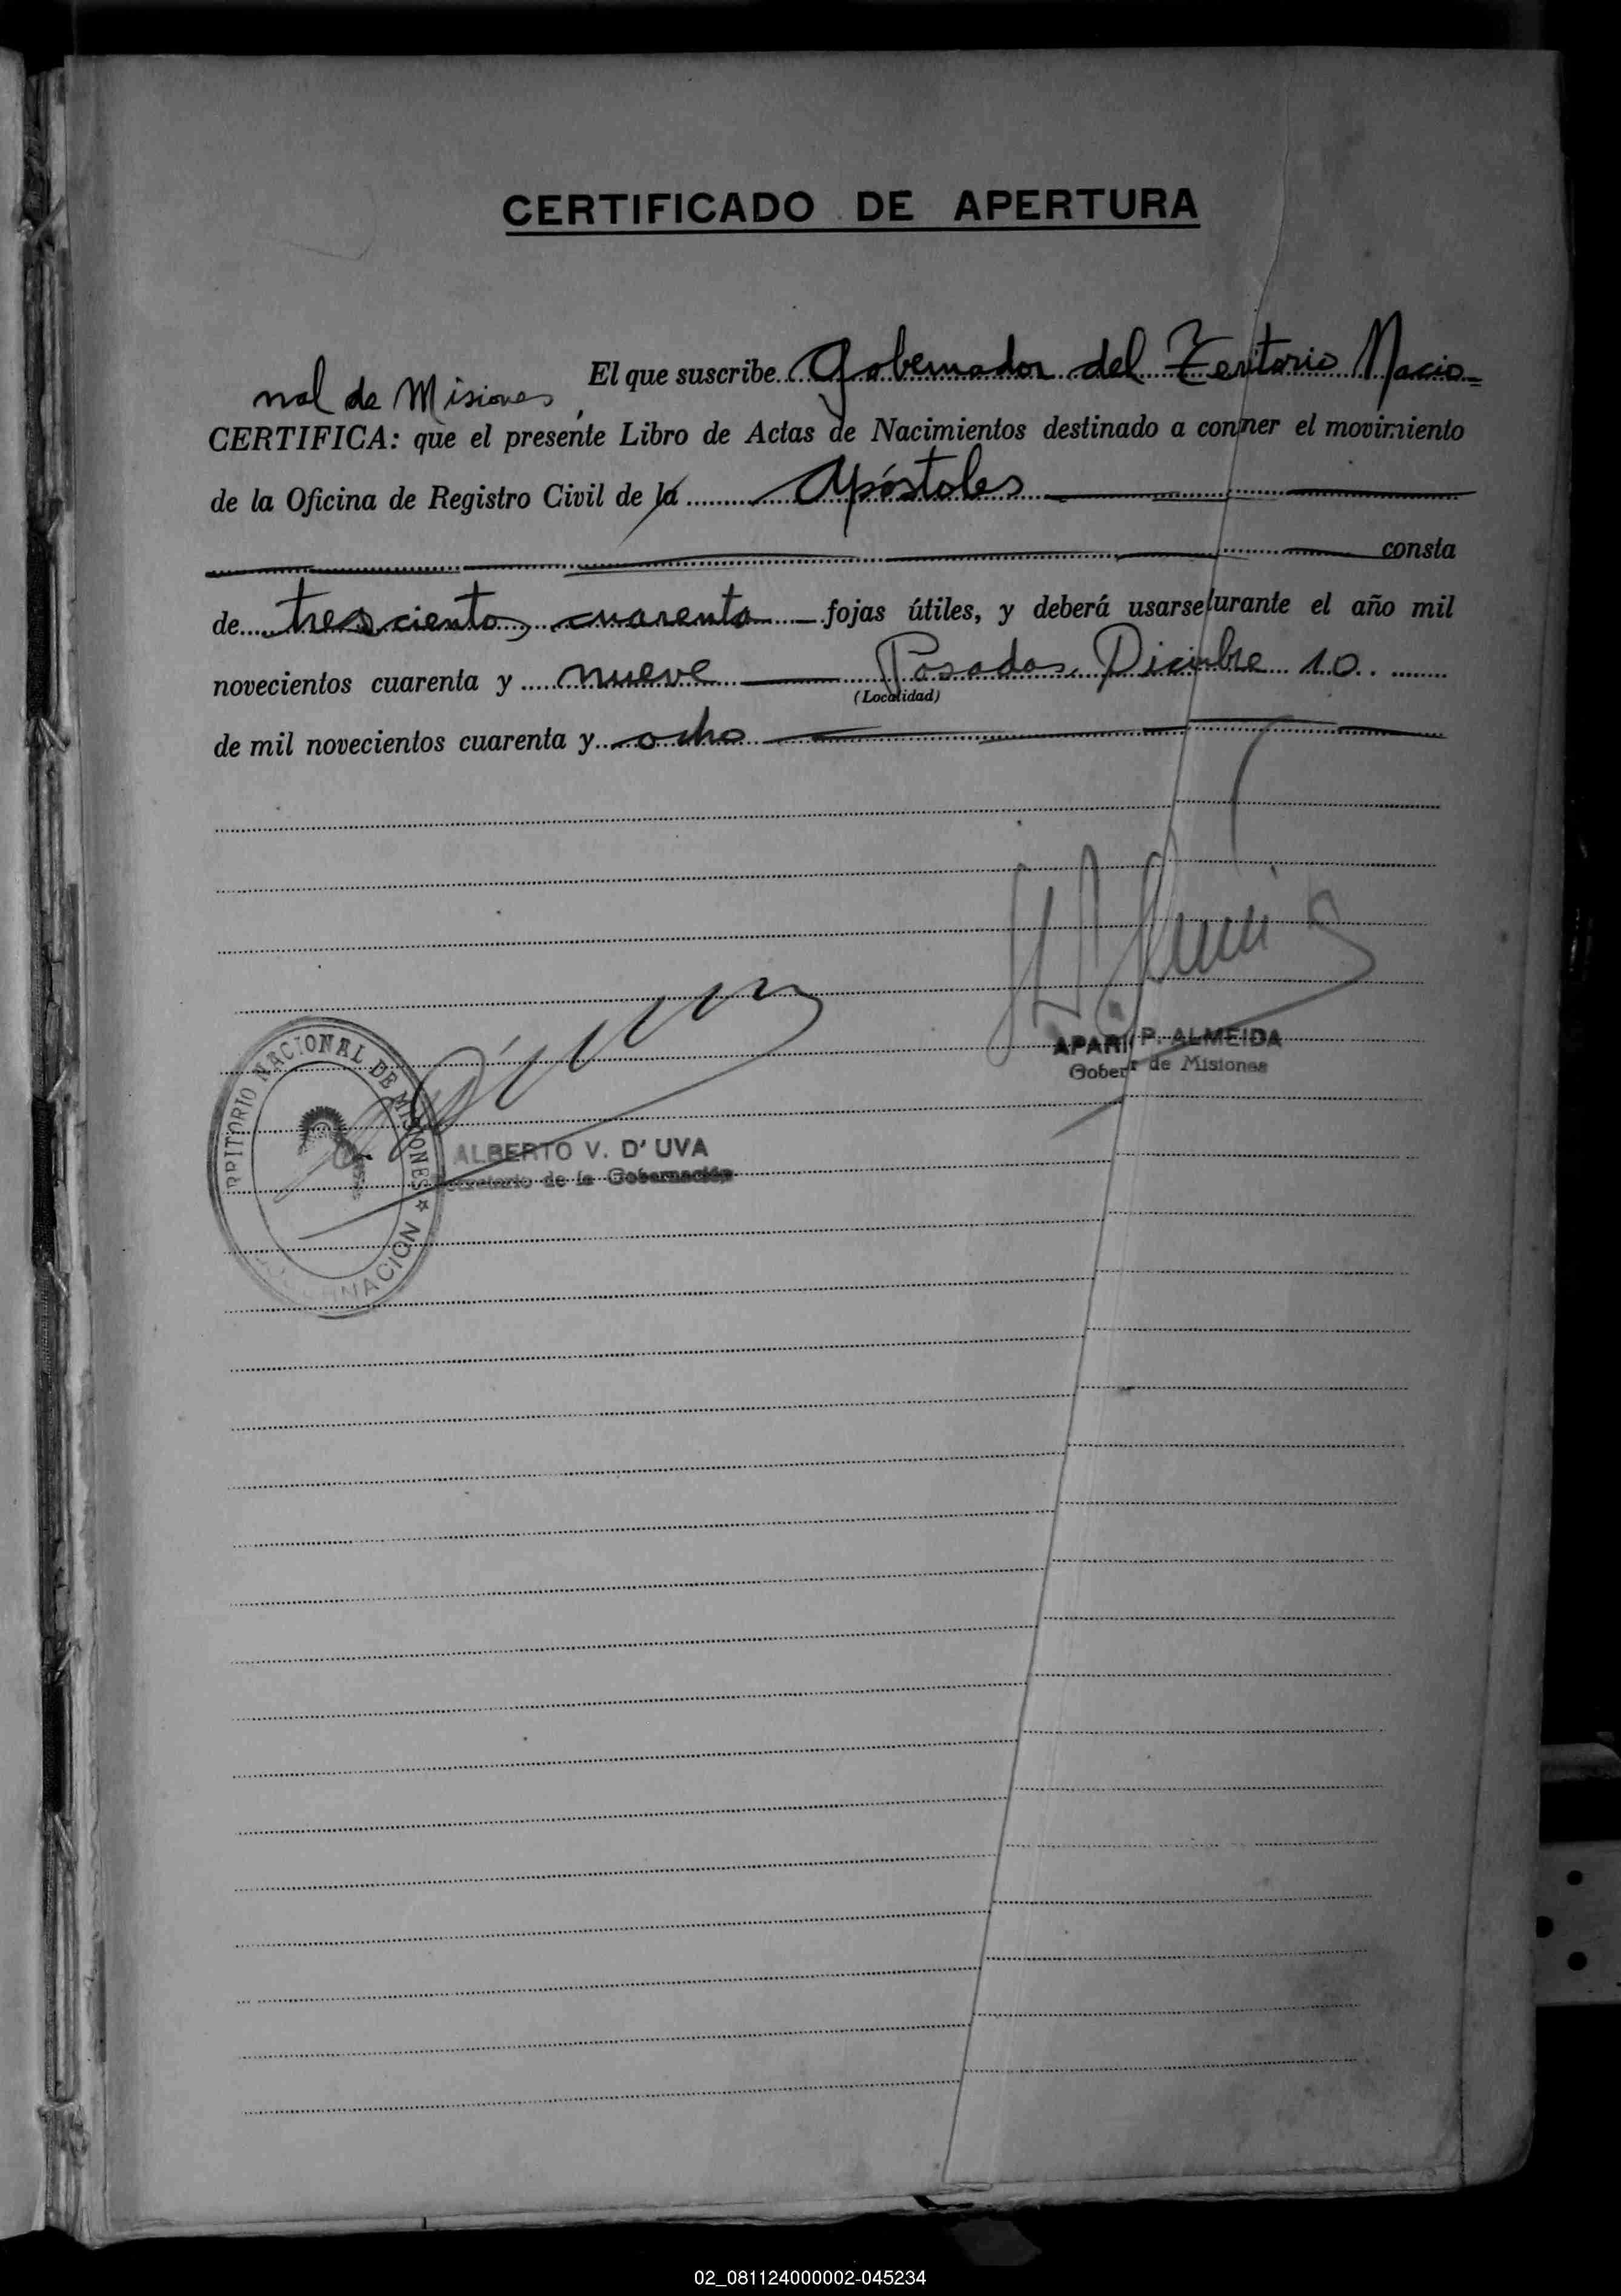 CERTIFICADO DE APERTURA
El que suscribe Gobernador del Territorio Nacio=
nal de Misiones,
CERTIFICA: que el presente Libro de Actas de Nacimientos destinado a con ner el movimiento
de la Oficina de Registro Civil de la Apóstoles
consta
de trescientos cuarenta fojas útiles, y deberá usarse urante el año mil
novecientos cuarenta y nueve Posadas, Diciembre 10
(Localidad)
de mil novecientos cuarenta y ocho
APARI P. ALMEIDA
Gober r de Misiones
RRITORIO NACIONAL DE MISIONES ☆
NACION
ALBERTO V. D' UVA
cretario de la Gobernación
02_081124000002-045234